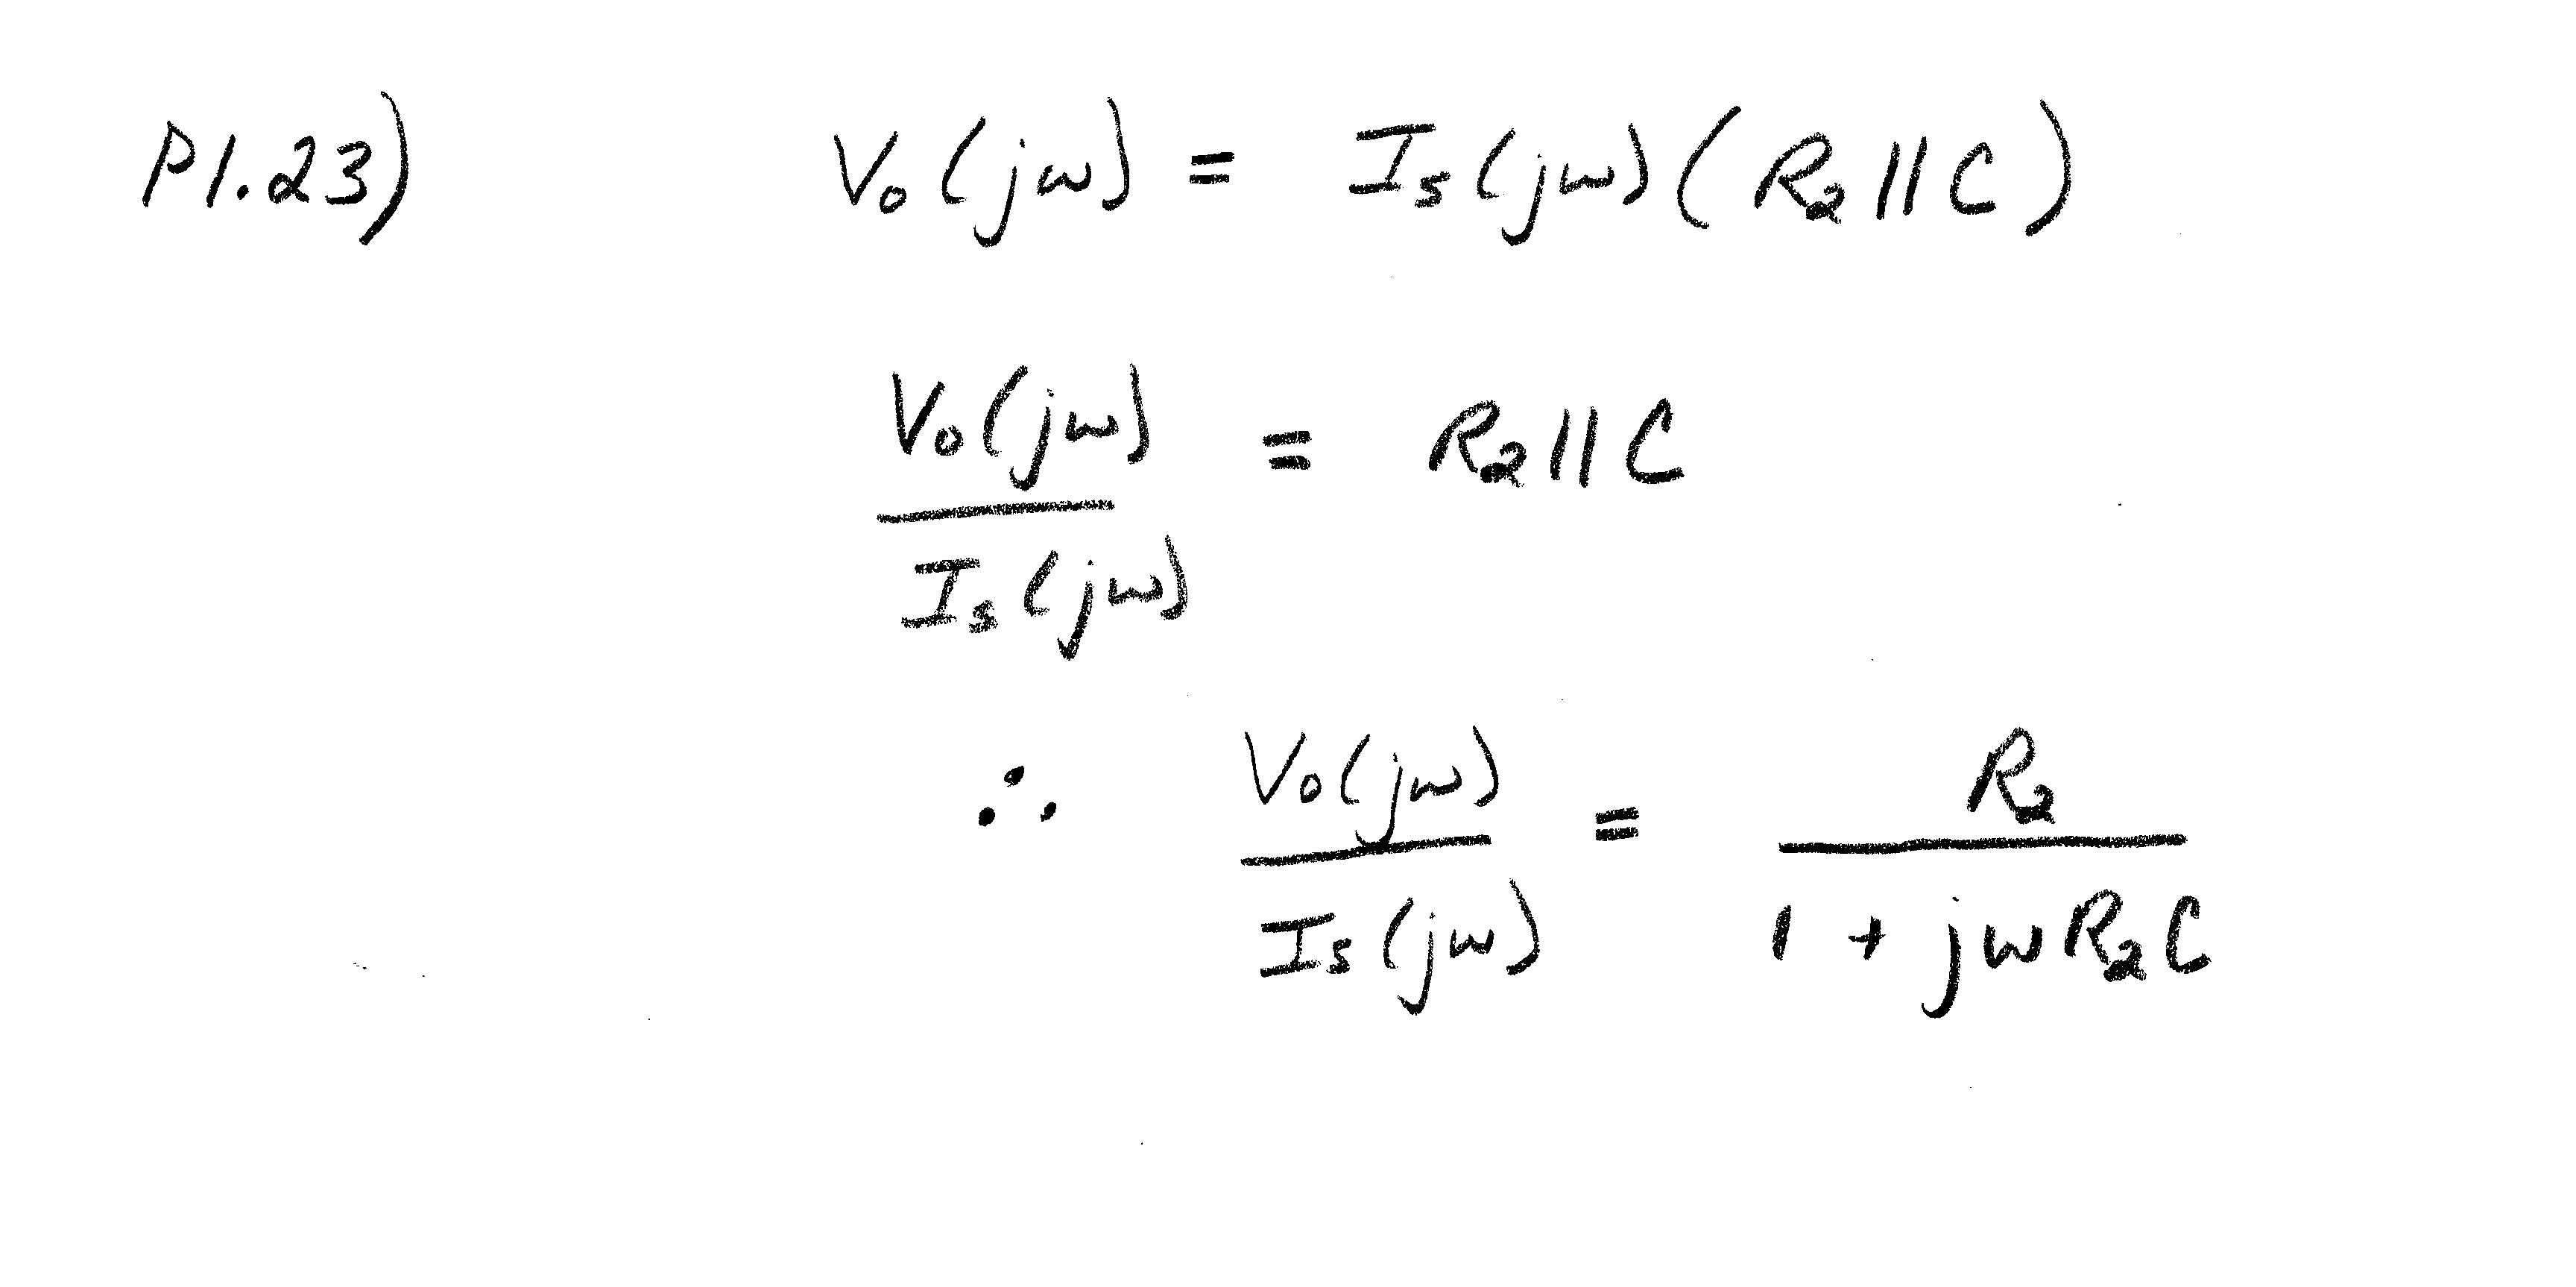 P1.23) Vo(jω) = Is(jω)(R2||C)
Vo(jω)/Is(jω) = R2||C
∴ Vo(jω)/Is(jω) = R2/(1 + jωR2C)